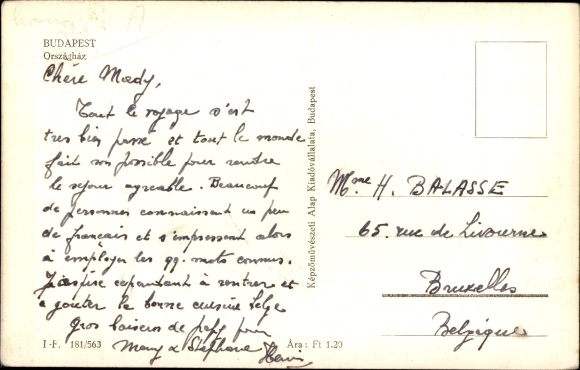 BUDAPEST
Országház
Chère Mady,
Tout le voyage s'est
très bien passé et tout le monde
fait son possible pour rendre
le séjour agréable. Beaucoup
de personnes connaissent un peu
de français et s'empressent alors
à employer les qq. mots connus.
J'aspire cependant à rentrer et
à goûter la bonne cuisine belge
Gros baisers de papy pour
Mamy & Stéphane Henri
I-F. 181/563
Ára: Ft 1.20
Képzőművészeti Alap Kiadóvállalata, Budapest
Mme H. BALASSE
65. rue de Livourne
Bruxelles
Belgique